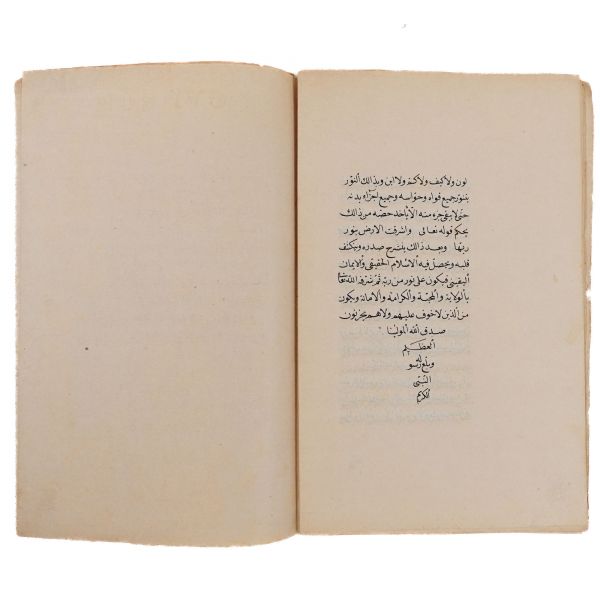 لون ولا كيف ولا كم ولا اين وبذالك النور
يتنور جميع قواه وحواسه وجميع اجزاء بدنه
حتى لا يبقى جزء منه الا ياخذ حصه من ذالك
بحكم قوله تعالى واشرقت الارض بنور
ربها وبعد ذالك ينشرح صدره وينكشف
قلبه ويحصل فيه الاسلام الحقيقى والايمان
اليقينى فيكون على نور من ربه ثم شرفه الله تعالى
بالولاية والمحبة والكرامة والامانة ويكون
من الذين لا خوف عليهم ولا هم يحزنون
صدق الله مولينا
العظيم
وبلغ رسوله
النبى
الكريم